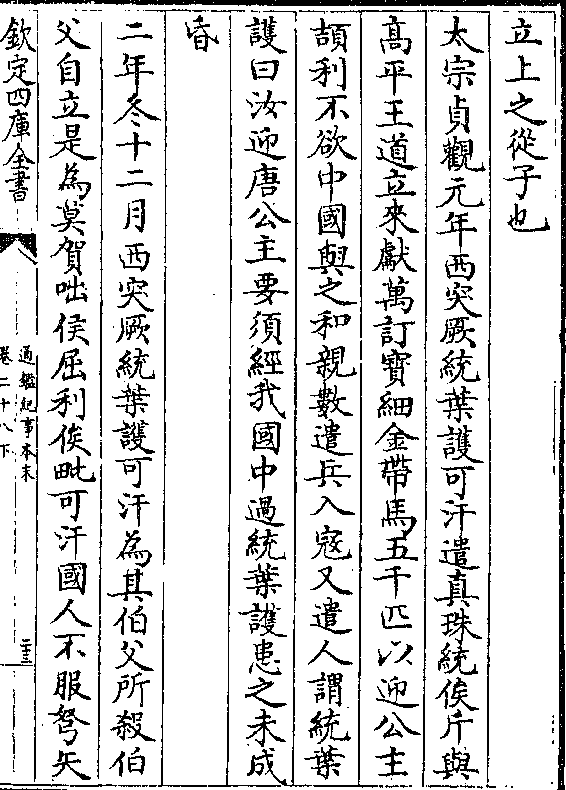 立上之從子也
太宗貞觀元年西突厥統葉護可汗遣真珠統俟斤與
高平王道立來獻萬訂寳細金帶馬五千匹以迎公主
頡利不欲中國與之和親數遣兵入寇又遣人謂統葉
護曰汝迎唐公主要須經我國中過統葉護患之未成
昏
二年冬十二月西突厥統葉護可汗為其伯父所殺伯
父自立是為莫賀咄侯屈利俟毗可汗國人不服弩矢
欽定四庫全書
通鑑紀事本末
卷二十八下
二十三